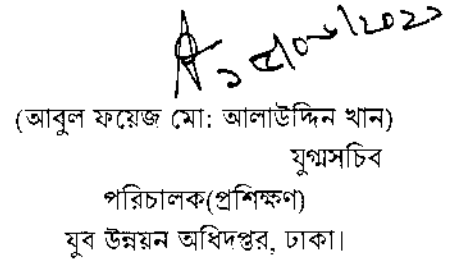 (আবুল ফয়েজ মো: আলাউদ্দিন খান)
যুগ্মসচিব
পরিচালক(প্রশিক্ষণ)
যুব উন্নয়ন অধিদপ্তর, ঢাকা।